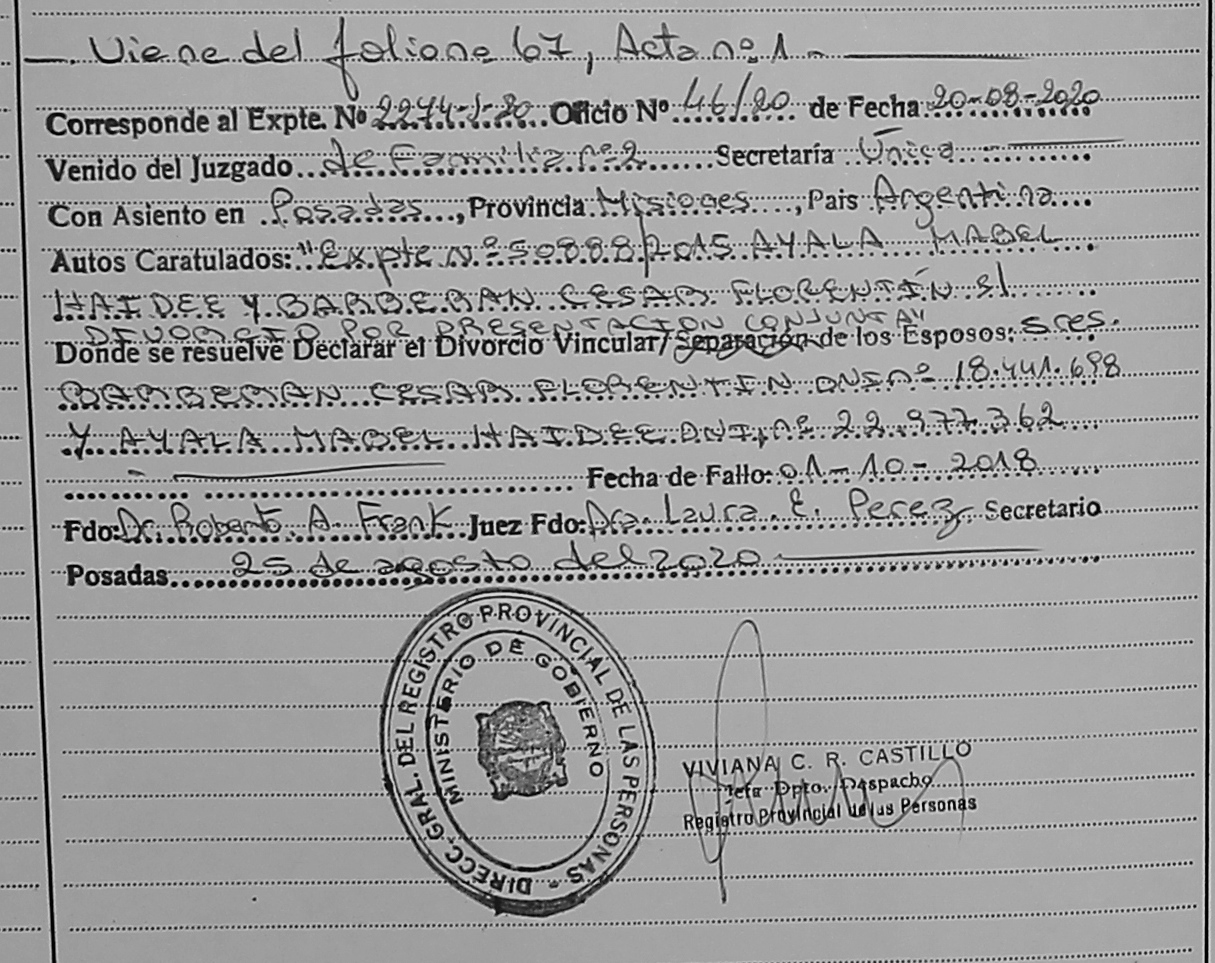 Viene del folio nº 67, Acta nº 1
Corresponde al Expte. Nº 2274-J-20 Oficio Nº 46/20 de Fecha 20-08-2020
Venido del Juzgado de Familia nº 2 Secretaría Única
Con Asiento en Posadas, Provincia Misiones, Pais Argentina
Autos Caratulados: "Expte Nº 50888/2015 AYALA MABEL
HAIDEE Y BARBERAN CESAR FLORENTÍN S/
DIVORCIO POR PRESENTACION CONJUNTA"
Donde se resuelve Declarar el Divorcio Vincular/ Separación de los Esposos: Sres.
BARBERAN CESAR FLORENTIN DNI nº 18.441.698
Y AYALA MABEL HAIDEE DNI nº 22.977.362
Fecha de Fallo: 01-10-2018
Fdo: Dr. Roberto A. Frank Juez Fdo: Dra. Laura E. Perez Secretario
Posadas 25 de agosto del 2020
DIRECC. GRAL. DEL REGISTRO PROVINCIAL DE LAS PERSONAS
MINISTERIO DE GOBIERNO
VIVIANA C. R. CASTILLO
Jefa Dpto. Despacho
Registro Provincial de las Personas